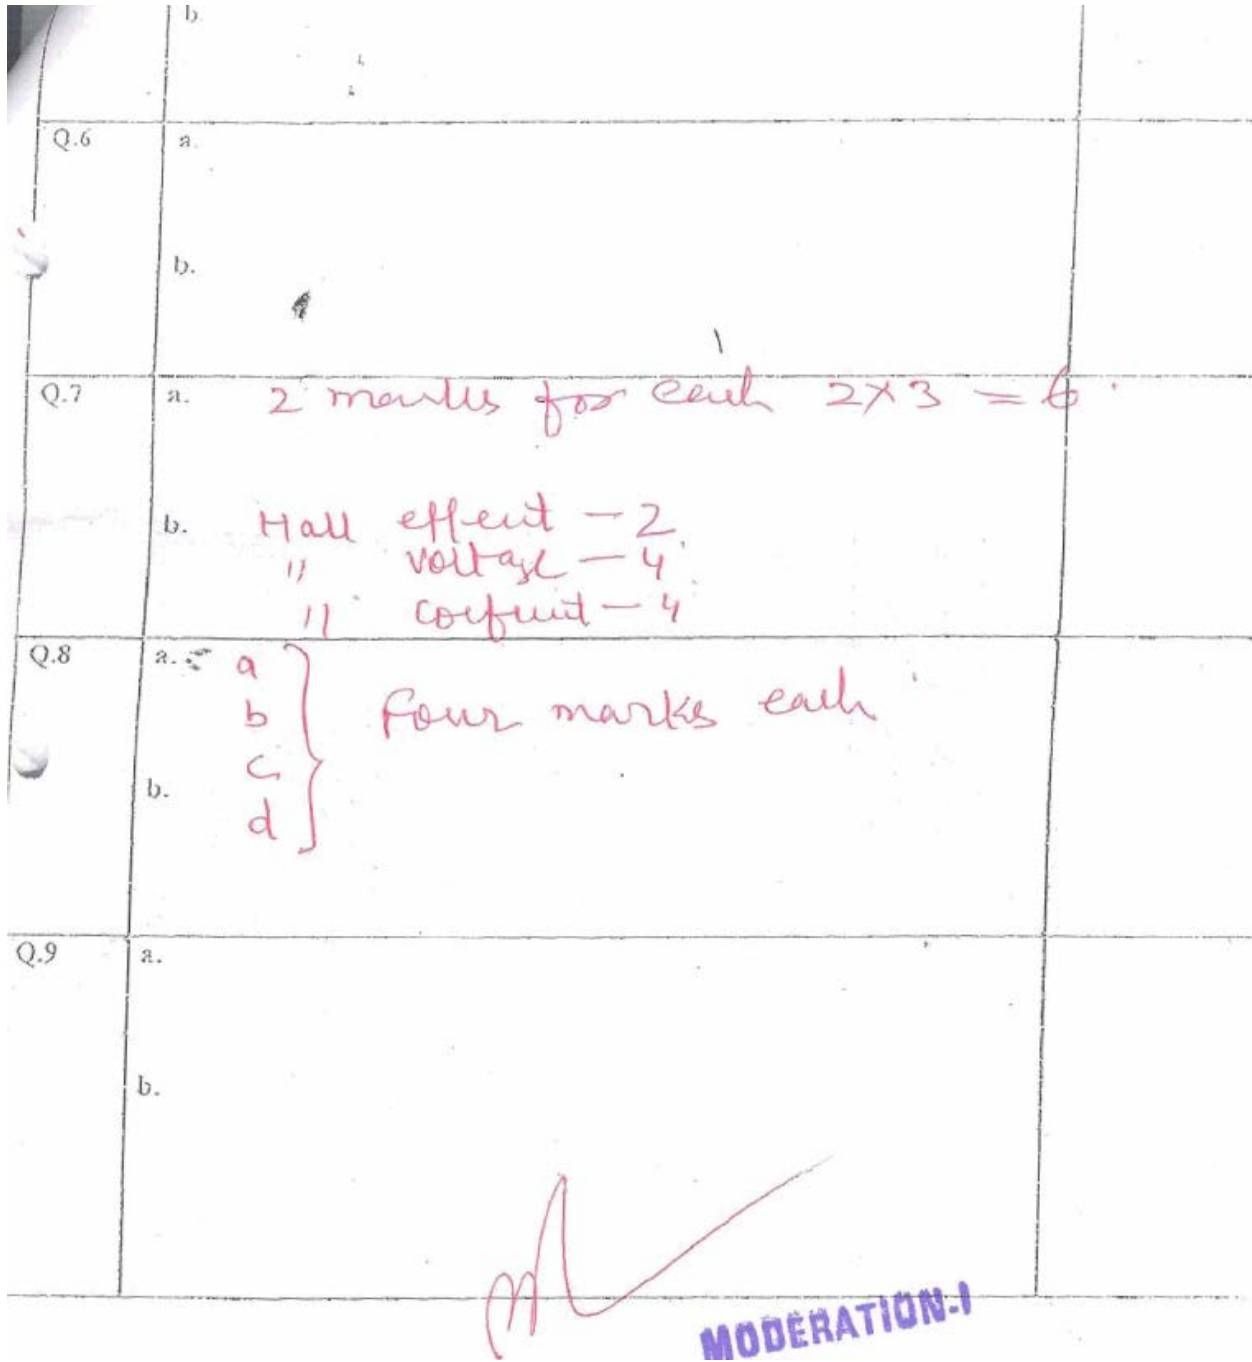 b.
Q.6 a.
b.
Q.7 a. 2 marks for each 2×3 = 6.
b. Hall effect - 2
" voltage - 4
" coefficient - 4
Q.8 a. a
b
c
d } Four marks each
b.
Q.9 a.
b.
MODERATION-I